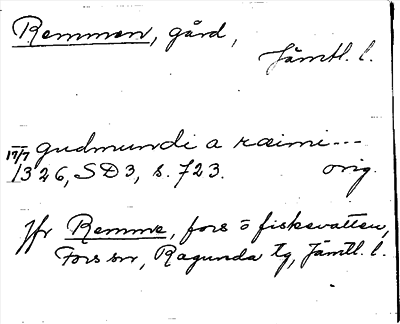 Remmen, gård,
Jämtl. l.
17/7 gudmundi a ræimi---
1326, SD3, s. 723. orig.
Jfr Remme, fors o fiskevatten,
Fors sn, Ragunda tg, Jämtl. l.